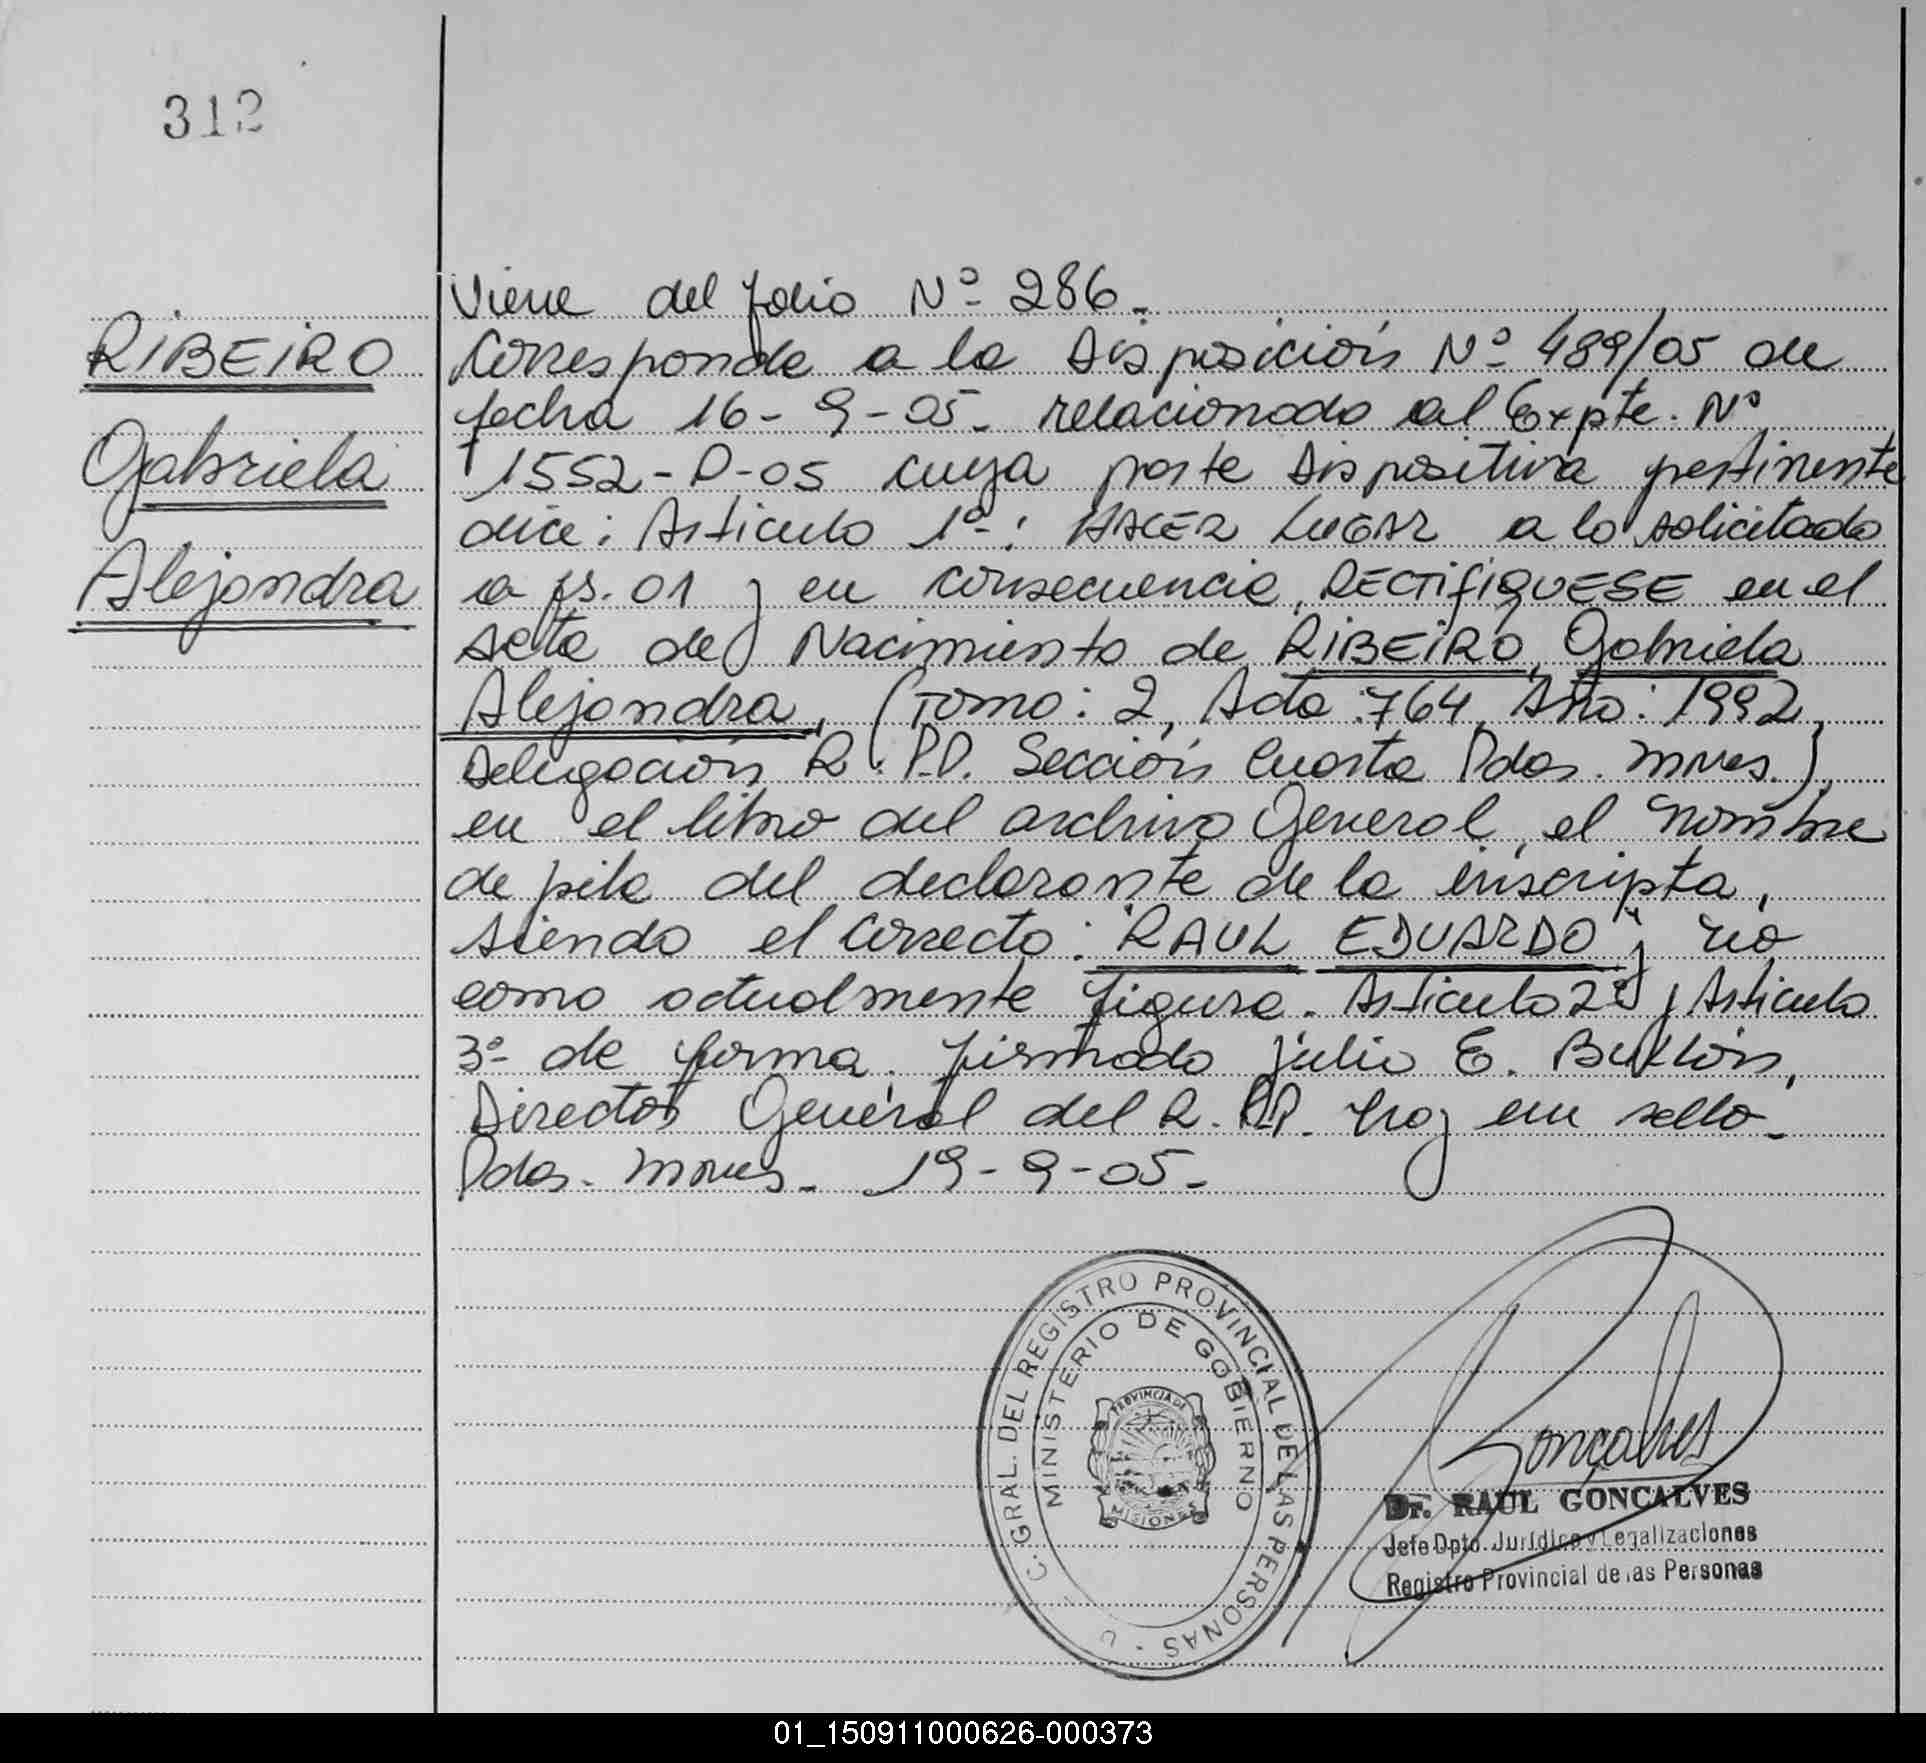 312
RIBEIRO
Gabriela
Alejandra
Viene del folio Nº 286.-
Corresponde a la Disposición Nº 489/05 de
fecha 16-9-05- relacionado al Expte. Nº
1552-D-05 cuya parte dispositiva pertinente
dice: Artículo 1º-: HACER LUGAR a lo solicitado
a fs. 01 y en consecuencia, RECTIFIQUESE en el
Acta de Nacimiento de RIBEIRO, Gabriela
Alejandra, (Tomo: 2, Acta: 764, Año: 1992,
Delegación R.P.P. Sección Cuarta Pdas. Mnes.),
en el libro del archivo General, el nombre
de pila del declarante de la inscripta,
siendo el correcto: "RAUL EDUARDO" y no
como actualmente figura. Artículo 2º y Artículo
3º- de forma. firmado Julio E.
Director General del R.P.P. hay un sello-
Pdas. Mnes.- 19-9-05-
C. GRAL. DEL REGISTRO PROVINCIAL DE LAS PERSONAS - U
MINISTERIO DE GOBIERNO
PROVINCIA DE
MISIONES
Gonçalves
Dr. RAUL GONÇALVES
Jefe Dpto. Jurídico y Legalizaciones
Registro Provincial de las Personas
01_150911000626-000373